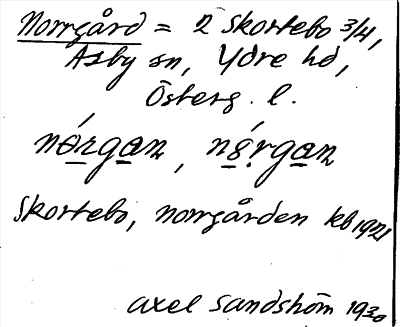 Norrgård = 2 Skortebo 3/4,
Asby sn, Ydre hd,
Österg. l.
nǿrgan, nǿrgan
Skortebo, norrgården kb 1921
Axel Sandshöm 1930